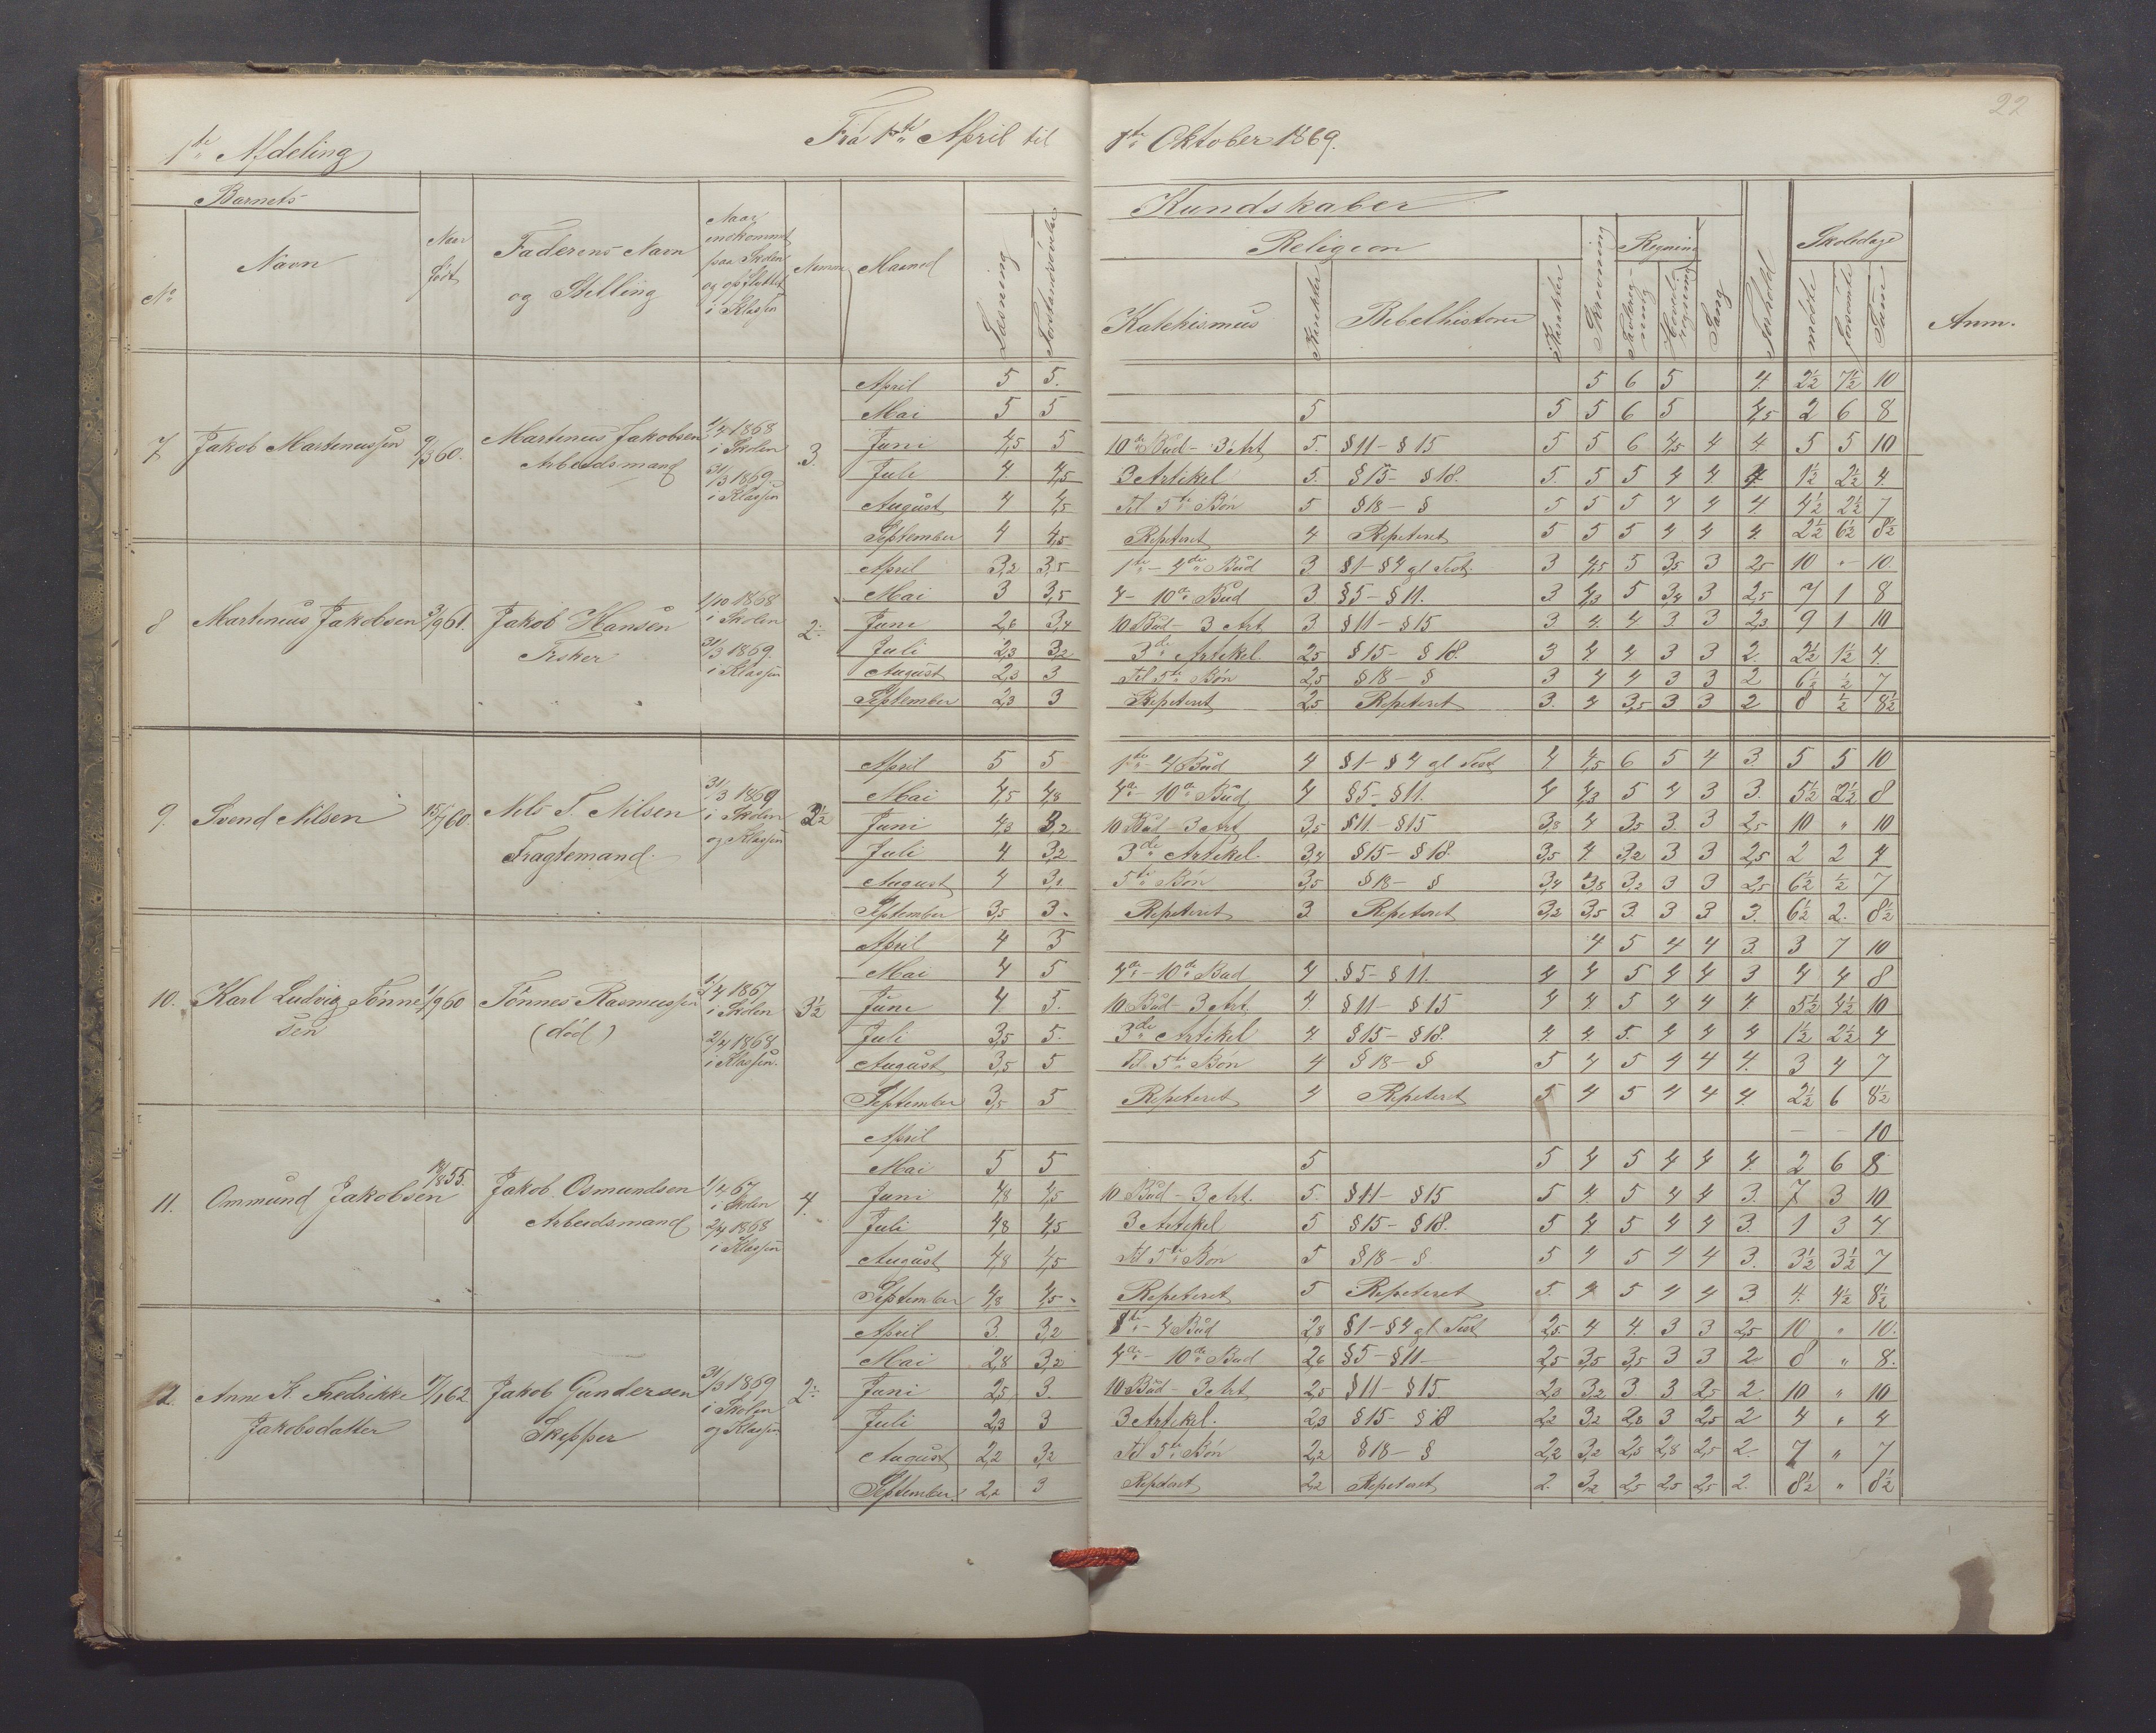 22
1ste Afdeling Fra 1ste April til 1ste Oktober 1869.
Barnets Kundskaber
Religion Regning Skoledage
No Navn Naar født Faderens Navn og Stilling Naar indkommet paa Skolen og opflyttet i Klassen Maaned Læsning Forstandsøvelse Katekismus Karakter Bibelhistorie Karakter Skrivning Hoved-regning Sang Forhold mødte forsømte Sum Anm.
7 Jakob Martenussen 9/3 60. Martenus Jakobsen Arbeidsmand 1/4 1868 i Skolen 31/3 1869 i Klassen 3.
April 5 5. 5 6 5 4. 2½ 7½ 10
Mai 5 5 5 5 5 6 5 4,5 2 6 8
Juni 4,5 5 10de Bud - 3 Art 5. § 11 - § 15 5 5 6 4,5 4 4. 5 5 10
Juli 4. 4,5 3 Artikel 5. § 15 - § 18. 5. 5 5 4 4 4 1½ 2½ 4.
August 4 4,5 til 5te Bøn 5 § 18 - § 5 5 5 4 4 4 4½ 2½ 7
September 4 4,5 Repeteret 4 Repeteret 5 5 5 4 4 4 2½ 6½ 8½
8 Martenius Jakobsen 3/9 61. Jakob Hansen Fisker 1/10 1868 i Skolen 31/3 1869 i Klassen 2
April 3,2 3,5 1ste - 4de Bud 3. § 1 - § 4 gl Test. 3 4,5 5 3,5 3 2,5 10 " 10.
Mai 3 3,5 4 - 10de Bud 3 § 5 - § 11. 3 4,3 5 3,4 3 2,5 7 1 8
Juni 2,6 3,4 10 Bud - 3 Art. 3 § 11 - § 15 3 4. 4 3 3 2,3 9 1 10
Juli 2,3 3,2 3die Artikel. 2,5 § 15 - § 18. 3 4. 4. 3 3 2. 2½ 1½ 4.
August 2,3 3 til 5te Bøn 2,5 § 18 - § 3 4 4 3 3 2 6½ ½ 7
September 2,3 3 Repeteret 2,5 Repeteret 3. 4 3,5 3 3 2 8 ½ 8½
9. Svend Nilsen 15/7 60. Nils T. Nilsen Fragtemand. 31/3 1869 i Skolen og Klassen 3½
April 5 5 1ste - 4 Bud 4 § 1 - § 4 gl Test 4 4,5 6 5 4 3. 5 5 10
Mai 4,5 4,8 4de - 10de Bud 4 § 5 - § 11. 4 4,3 5 4 3 3. 5½ 2½ 8
Juni 4,3 3,2 10 Bud - 3 Art 3,5 § 11. - § 15 3,8 4 3,5 3. 3 2,5 10 " 10
Juli 4 3,2 3die Artikel. 3,4 § 15 - § 18. 3,5 4. 3,2 3 3 2,5 2 2 4
August 4 3,1 5te Bøn 3,5 § 18 - § 3,4 3,8 3,2 3 3 2,5 6½ ½ 7
September 3,5 3. Repeteret 3. Repeteret 3,2 3,5 3. 3 3 3. 6½ 2. 8½
10. Karl Ludvig Tønnesen 1/9 60 Tønnes Rasmussen (død) 1/4 1867 i Skolen 2/4 1868 i Klassen. 3½
April 4 5 4 5 4 4 3. 3 7 10
Mai 4 5 4de - 10de Bud 4 § 5 - § 11. 4 4. 5 4 4 3 4 4 8
Juni 4. 5. 10 Bud - 3 Art. 4. § 11 - § 15 4 4. 5 4 4 4. 5½ 4½ 10
Juli 3,5 5. 3die Artikel 4. § 15 - § 18. 4. 4. 5. 4 4 4 1½ 2½ 4
August 3,5 5 til 5te Bøn 4 § 18 - § 5 4 5 4 4 4. 3 4 7
September 3,5 5 Repeteret 4 Repeteret 5 4 5 4 4 4. 2½ 6 8½
11. Ommund Jakobsen 18/8 55. Jakob Osmundsen Arbeidsmand 1/4 67 i Skolen 2/4 1868 i Klassen 4.
April - - 10
Mai 5 5 5 5 4 5 4 4 4. 2 6 8
Juni 4,8 4,5 10 Bud - 3 Art. 5. § 11 - § 15 5 4. 5 4 4 3. 7 3 10
Juli 4,8 4,5 3 Artikel 5 § 15 - § 18. 5 4. 5 4 4 3. 1 3 4.
August 4,8 4,5 til 5te Bøn 5 § 18 - § 5 4 5 4 4 3. 3½ 3½ 7
September 4,8 4,5 Repeteret 5 Repeteret 5. 4 5 4 4 3 4. 4½ 8½
12. Anne K. Fredrikke Jakobsdatter 7/1 62 Jakob Gundersen Skipper 31/3 1869 i Skolen og Klassen 2
April 3. 3,2 1ste - 4 Bud 2,8 § 1 - § 4 gl Test 2,5. 4 4. 3 3 2,5 10 " 10.
Mai 2,8 3,2 4de - 10de Bud 2,6 § 5 - § 11 2,5 3,5 3,5 3 3 2 8 " 8.
Juni 2,5 3. 10 Bud - 3 Art 2,5 § 11 - § 15. 2,3 3,2 3 3 2,5 2 10 " 10
Juli 2,3 3 3 Artikel. 2,3 § 15 - § 18 2,2 3,2 2,8 3 2,5 2 4 " 4
August 2,2 3,2 til 5te Bøn 2,2 § 18 - § 2,2 3,2 2,5 2,8 2,5 2. 7 " 7
September 2,2 3 Repeteret 2,2 Repeteret 2. 3,2 2,5 2,5 2,5 2. 8½ " 8½